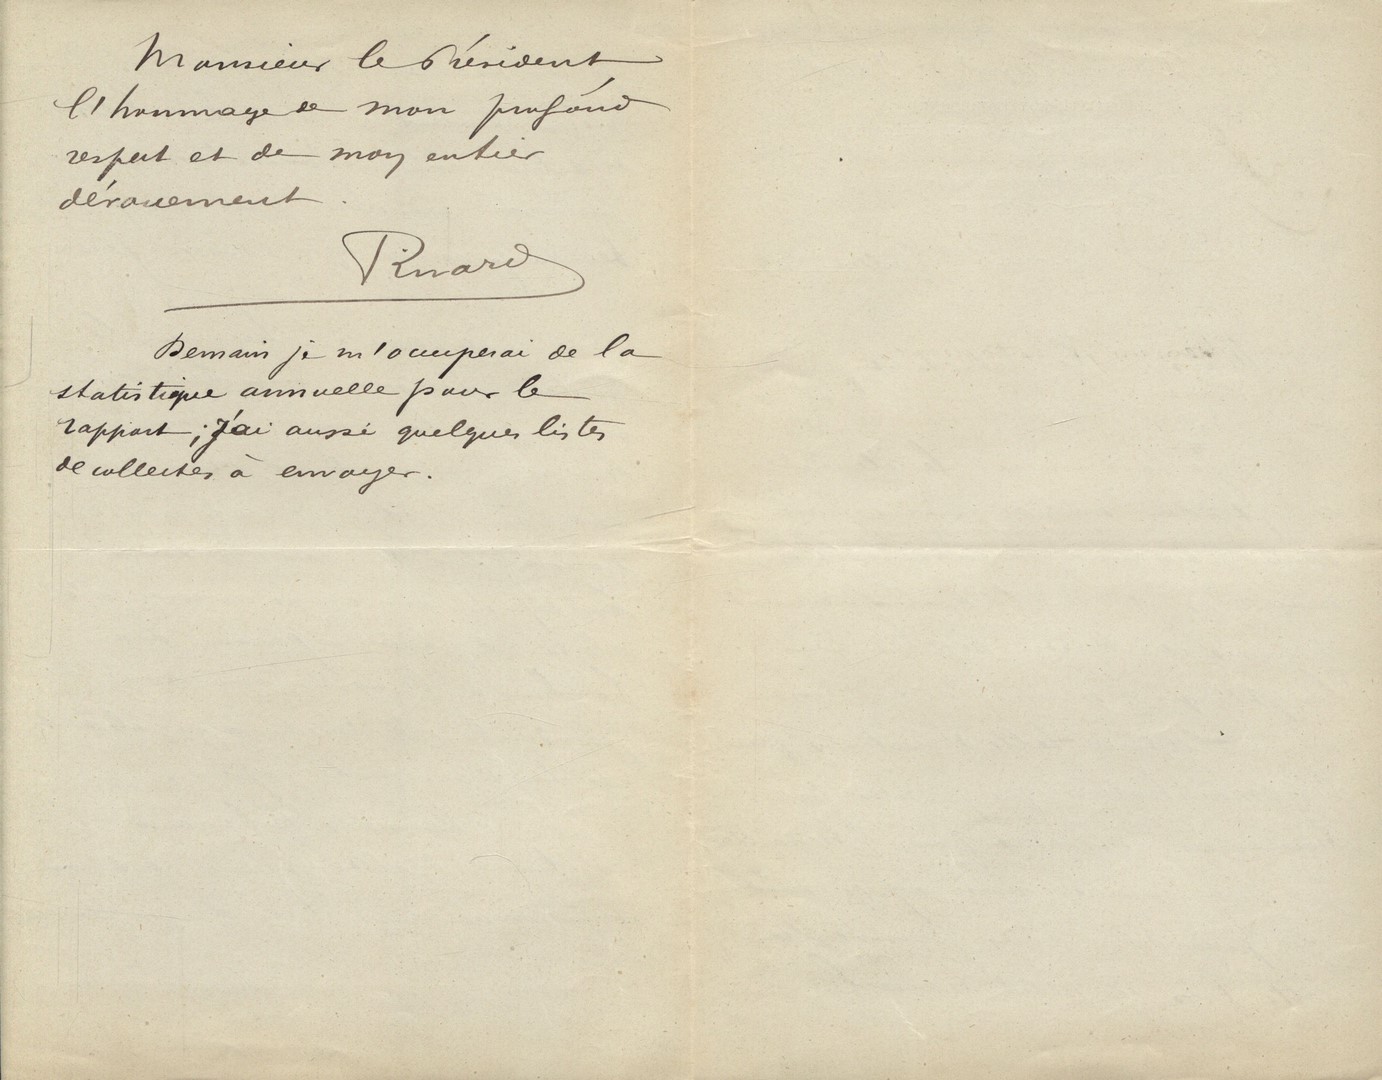 Monsieur le Président
l'hommage de mon profond
respect et de mon entier
dévouement.
Pinard
Demain je m'occuperai de la
statistique annuelle pour le
rapport ; j'ai aussi quelques listes
de collectes à envoyer.